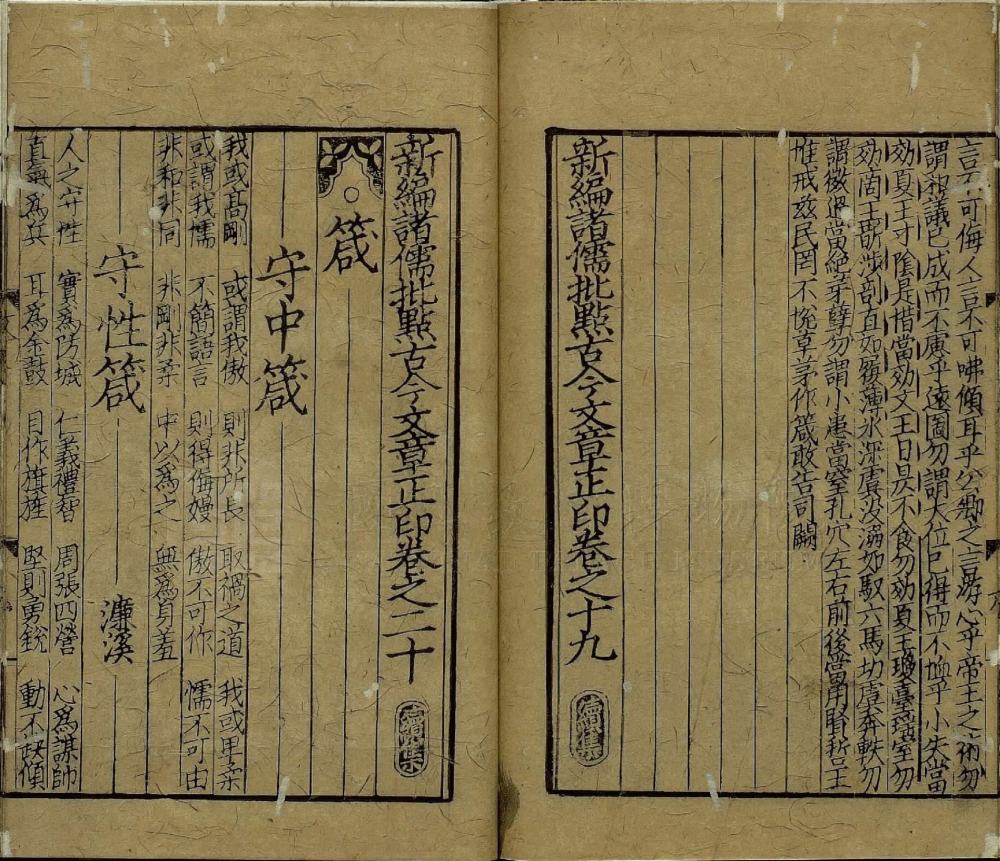 言不可侮人言不可咈傾耳乎公卿之言游心乎帝王之術勿
謂相議已成而不慮乎遠圖勿謂大位已得而不恤乎小失當
効夏王寸隂是惜當効文王日昃不食勿効夏王瓊臺瑶室勿
効商王斮涉剖直如履薄氷深虞没溺如馭六馬切虞奔軼勿
謂微過當絶芽孽勿謂小患當窒孔穴左右前後當用賢哲王
惟戒兹民罔不悦草茅作箴敢告司闕
新編諸儒批點古今文章正印卷之十九
續集
新編諸儒批點古今文章正印卷之二十
續集
箴
守中箴
我或髙剛 或謂我傲 則非所長 取禍之道 我或畢柔
或謂我懦 不簡語言 則得侮嫚 傲不可作 懦不可由
非和非同 非剛非柔 中以為之 無為身羞
守性箴 濂溪
人之守性 實爲防城 仁義禮智 周張四營 心爲謀帥
直氣爲兵 耳爲金鼓 目作旗旌 堅則勇銳 動不缺傾